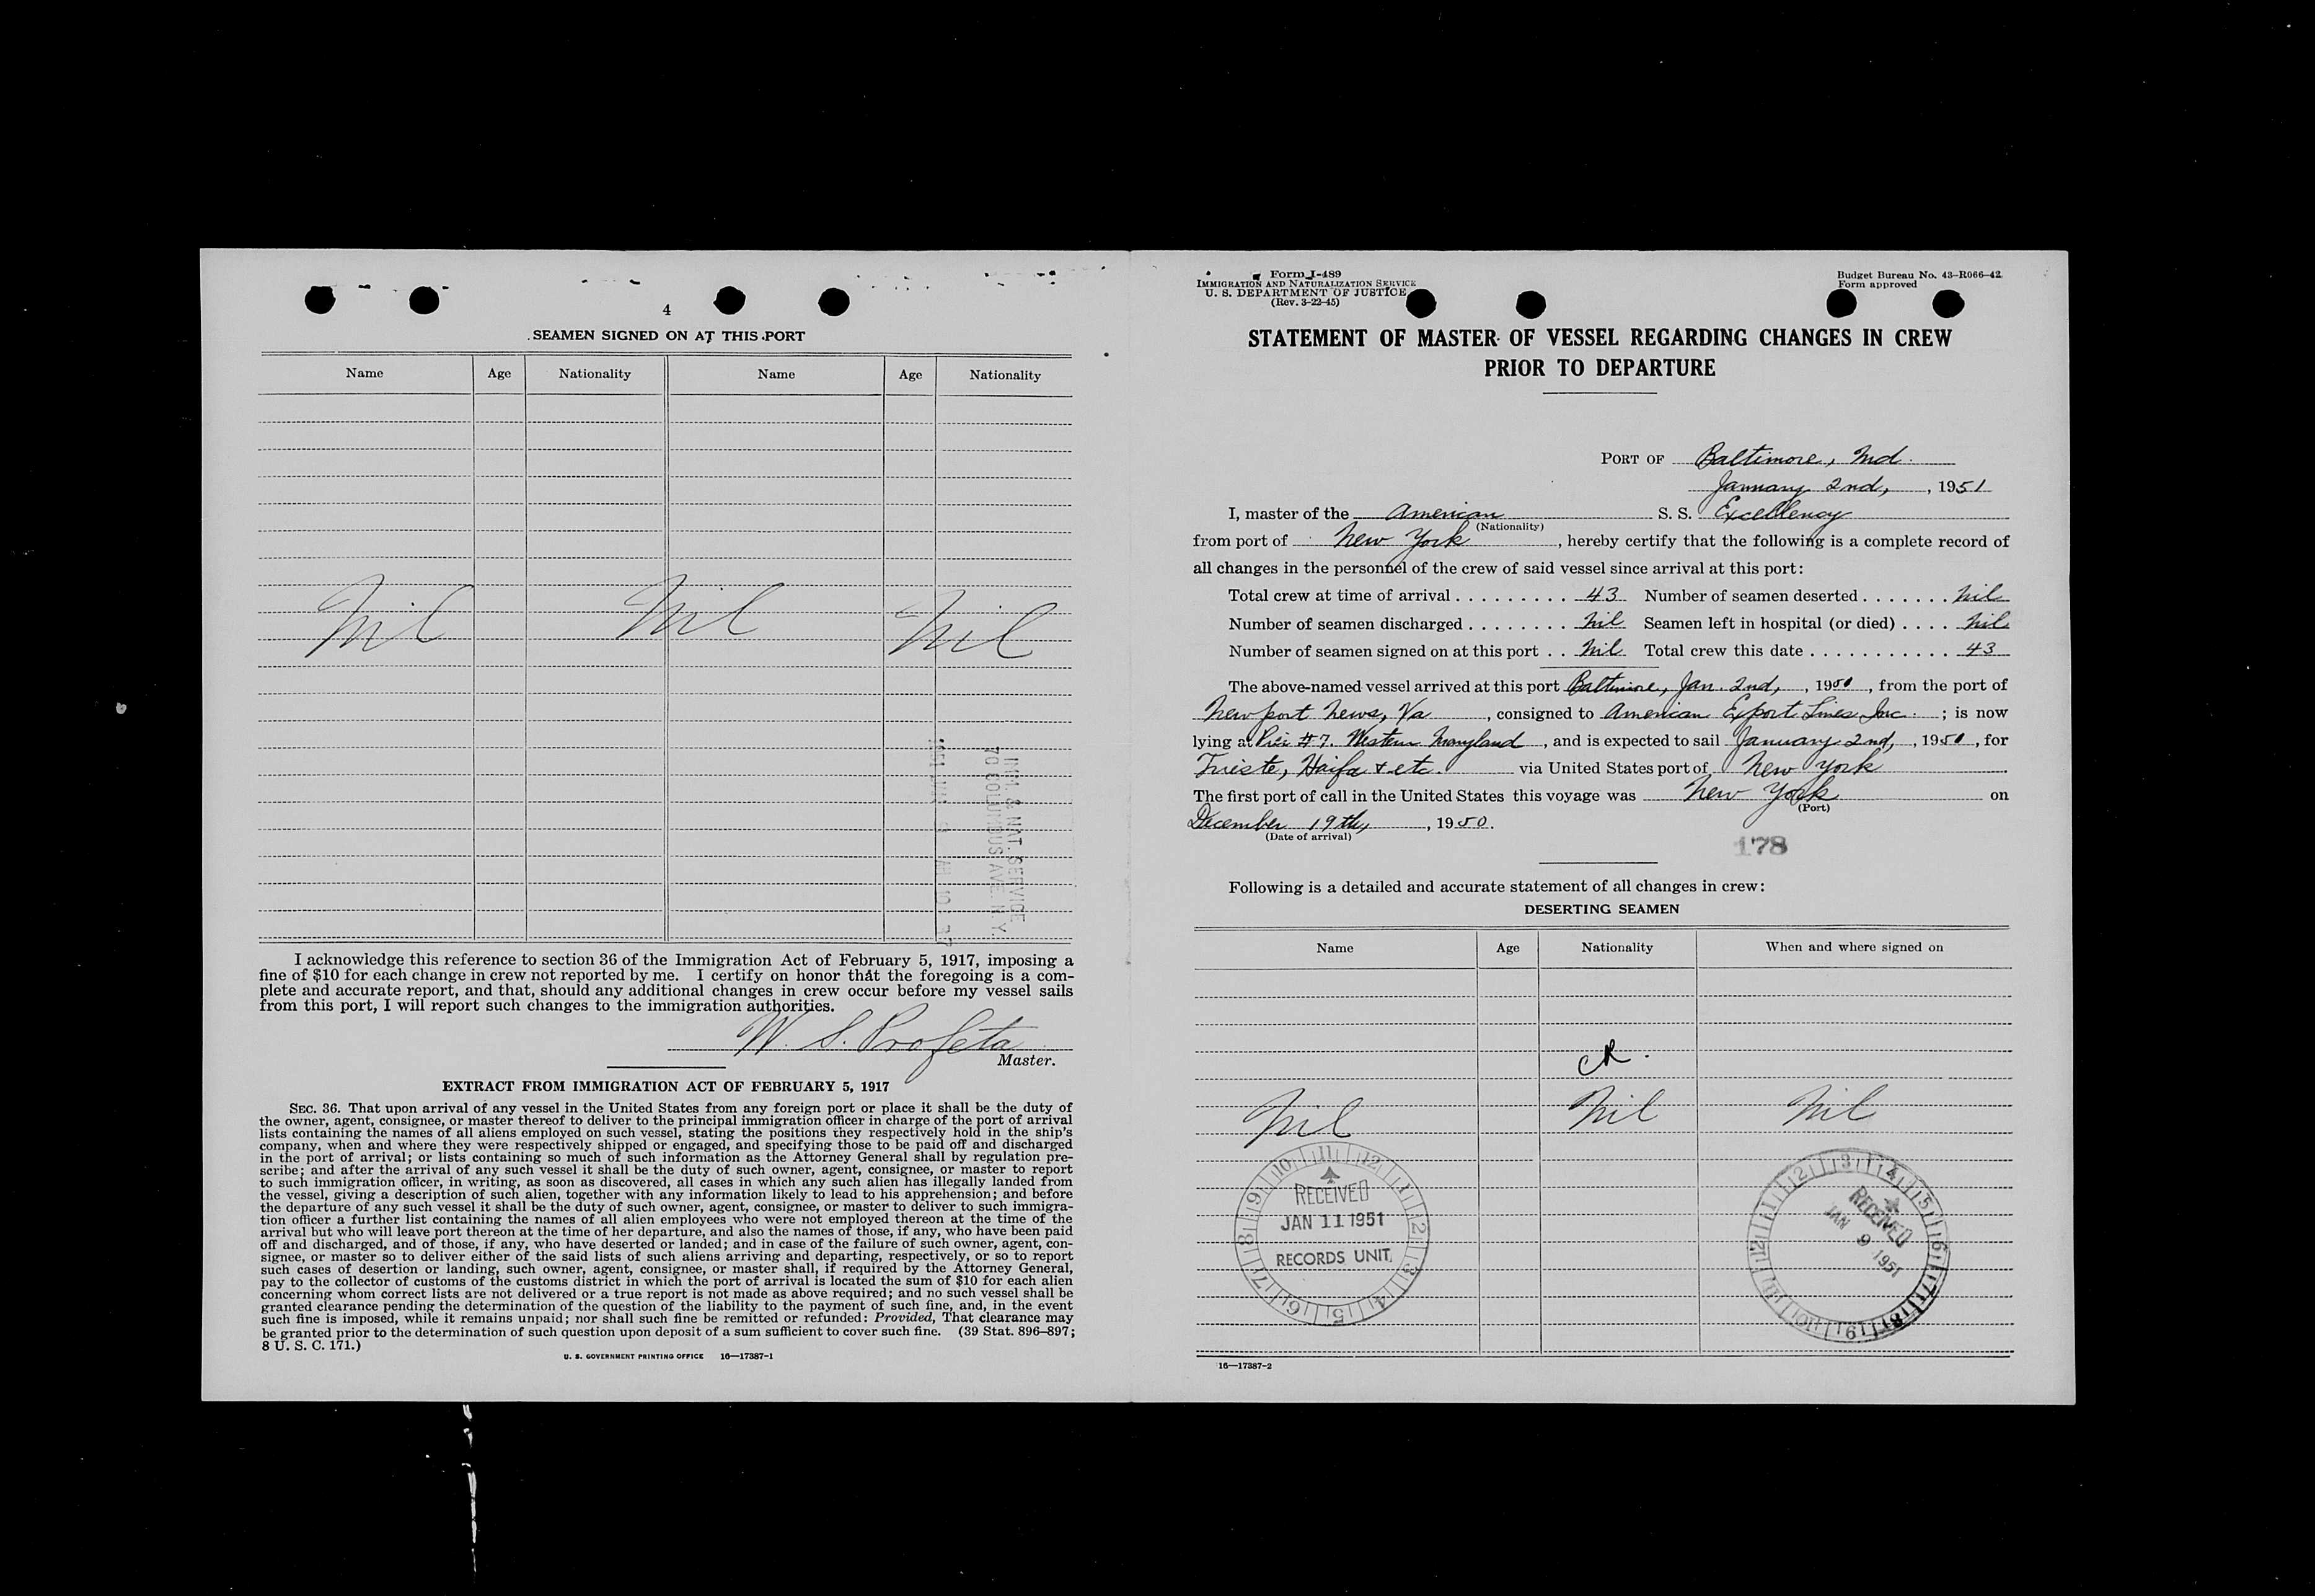 4
SEAMEN SIGNED ON AT THIS PORT
Name Age Nationality Name Age Nationality
Nil Nil Nil
IMM & NAT. SERVICE
70 COLUMBUS AVE. N.Y.
1951 JAN AM 10
I acknowledge this reference to section 36 of the Immigration Act of February 5, 1917, imposing a
fine of $10 for each change in crew not reported by me. I certify on honor that the foregoing is a com-
plete and accurate report, and that, should any additional changes in crew occur before my vessel sails
from this port, I will report such changes to the immigration authorities.
W. S. Profeta
Master.
EXTRACT FROM IMMIGRATION ACT OF FEBRUARY 5, 1917
SEC. 36. That upon arrival of any vessel in the United States from any foreign port or place it shall be the duty of
the owner, agent, consignee, or master thereof to deliver to the principal immigration officer in charge of the port of arrival
lists containing the names of all aliens employed on such vessel, stating the positions they respectively hold in the ship's
company, when and where they were respectively shipped or engaged, and specifying those to be paid off and discharged
in the port of arrival; or lists containing so much of such information as the Attorney General shall by regulation pre-
scribe; and after the arrival of any such vessel it shall be the duty of such owner, agent, consignee, or master to report
to such immigration officer, in writing, as soon as discovered, all cases in which any such alien has illegally landed from
the vessel, giving a description of such alien, together with any information likely to lead to his apprehension; and before
the departure of any such vessel it shall be the duty of such owner, agent, consignee, or master to deliver to such immigra-
tion officer a further list containing the names of all alien employees who were not employed thereon at the time of the
arrival but who will leave port thereon at the time of her departure, and also the names of those, if any, who have been paid
off and discharged, and of those, if any, who have deserted or landed; and in case of the failure of such owner, agent, con-
signee, or master so to deliver either of the said lists of such aliens arriving and departing, respectively, or so to report
such cases of desertion or landing, such owner, agent, consignee, or master shall, if required by the Attorney General,
pay to the collector of customs of the customs district in which the port of arrival is located the sum of $10 for each alien
concerning whom correct lists are not delivered or a true report is not made as above required; and no such vessel shall be
granted clearance pending the determination of the question of the liability to the payment of such fine, and, in the event
such fine is imposed, while it remains unpaid; nor shall such fine be remitted or refunded: Provided, That clearance may
be granted prior to the determination of such question upon deposit of a sum sufficient to cover such fine. (39 Stat. 896–897;
8 U. S. C. 171.)
U. S. GOVERNMENT PRINTING OFFICE 16—17387-1
Form I-489
IMMIGRATION AND NATURALIZATION SERVICE
U. S. DEPARTMENT OF JUSTICE
(Rev. 3-22-45)
Budget Bureau No. 43-R066-42
Form approved
STATEMENT OF MASTER OF VESSEL REGARDING CHANGES IN CREW
PRIOR TO DEPARTURE
PORT OF Baltimore, Md.
January 2nd, , 1951
I, master of the American S. S. Excellency
(Nationality)
from port of New York , hereby certify that the following is a complete record of
all changes in the personnel of the crew of said vessel since arrival at this port:
Total crew at time of arrival . . . . . . . . . 43 Number of seamen deserted . . . . . . . Nil
Number of seamen discharged . . . . . . . . Nil Seamen left in hospital (or died) . . . . Nil
Number of seamen signed on at this port . . Nil Total crew this date . . . . . . . . . . . 43
The above-named vessel arrived at this port Baltimore, Jan. 2nd, , 1951 , from the port of
Newport News, Va , consigned to American Export Lines Inc. ; is now
lying at Pier #7. Western Maryland , and is expected to sail January 2nd, , 1951 , for
Trieste, Haifa & etc. via United States port of New York
The first port of call in the United States this voyage was New York on
(Port)
December 19th, , 1950.
(Date of arrival)
178
Following is a detailed and accurate statement of all changes in crew:
DESERTING SEAMEN
Name Age Nationality When and where signed on
Nil Nil Nil
RECEIVED
JAN 11 1951
RECORDS UNIT
RECEIVED
JAN 9 1951
16—17387-2